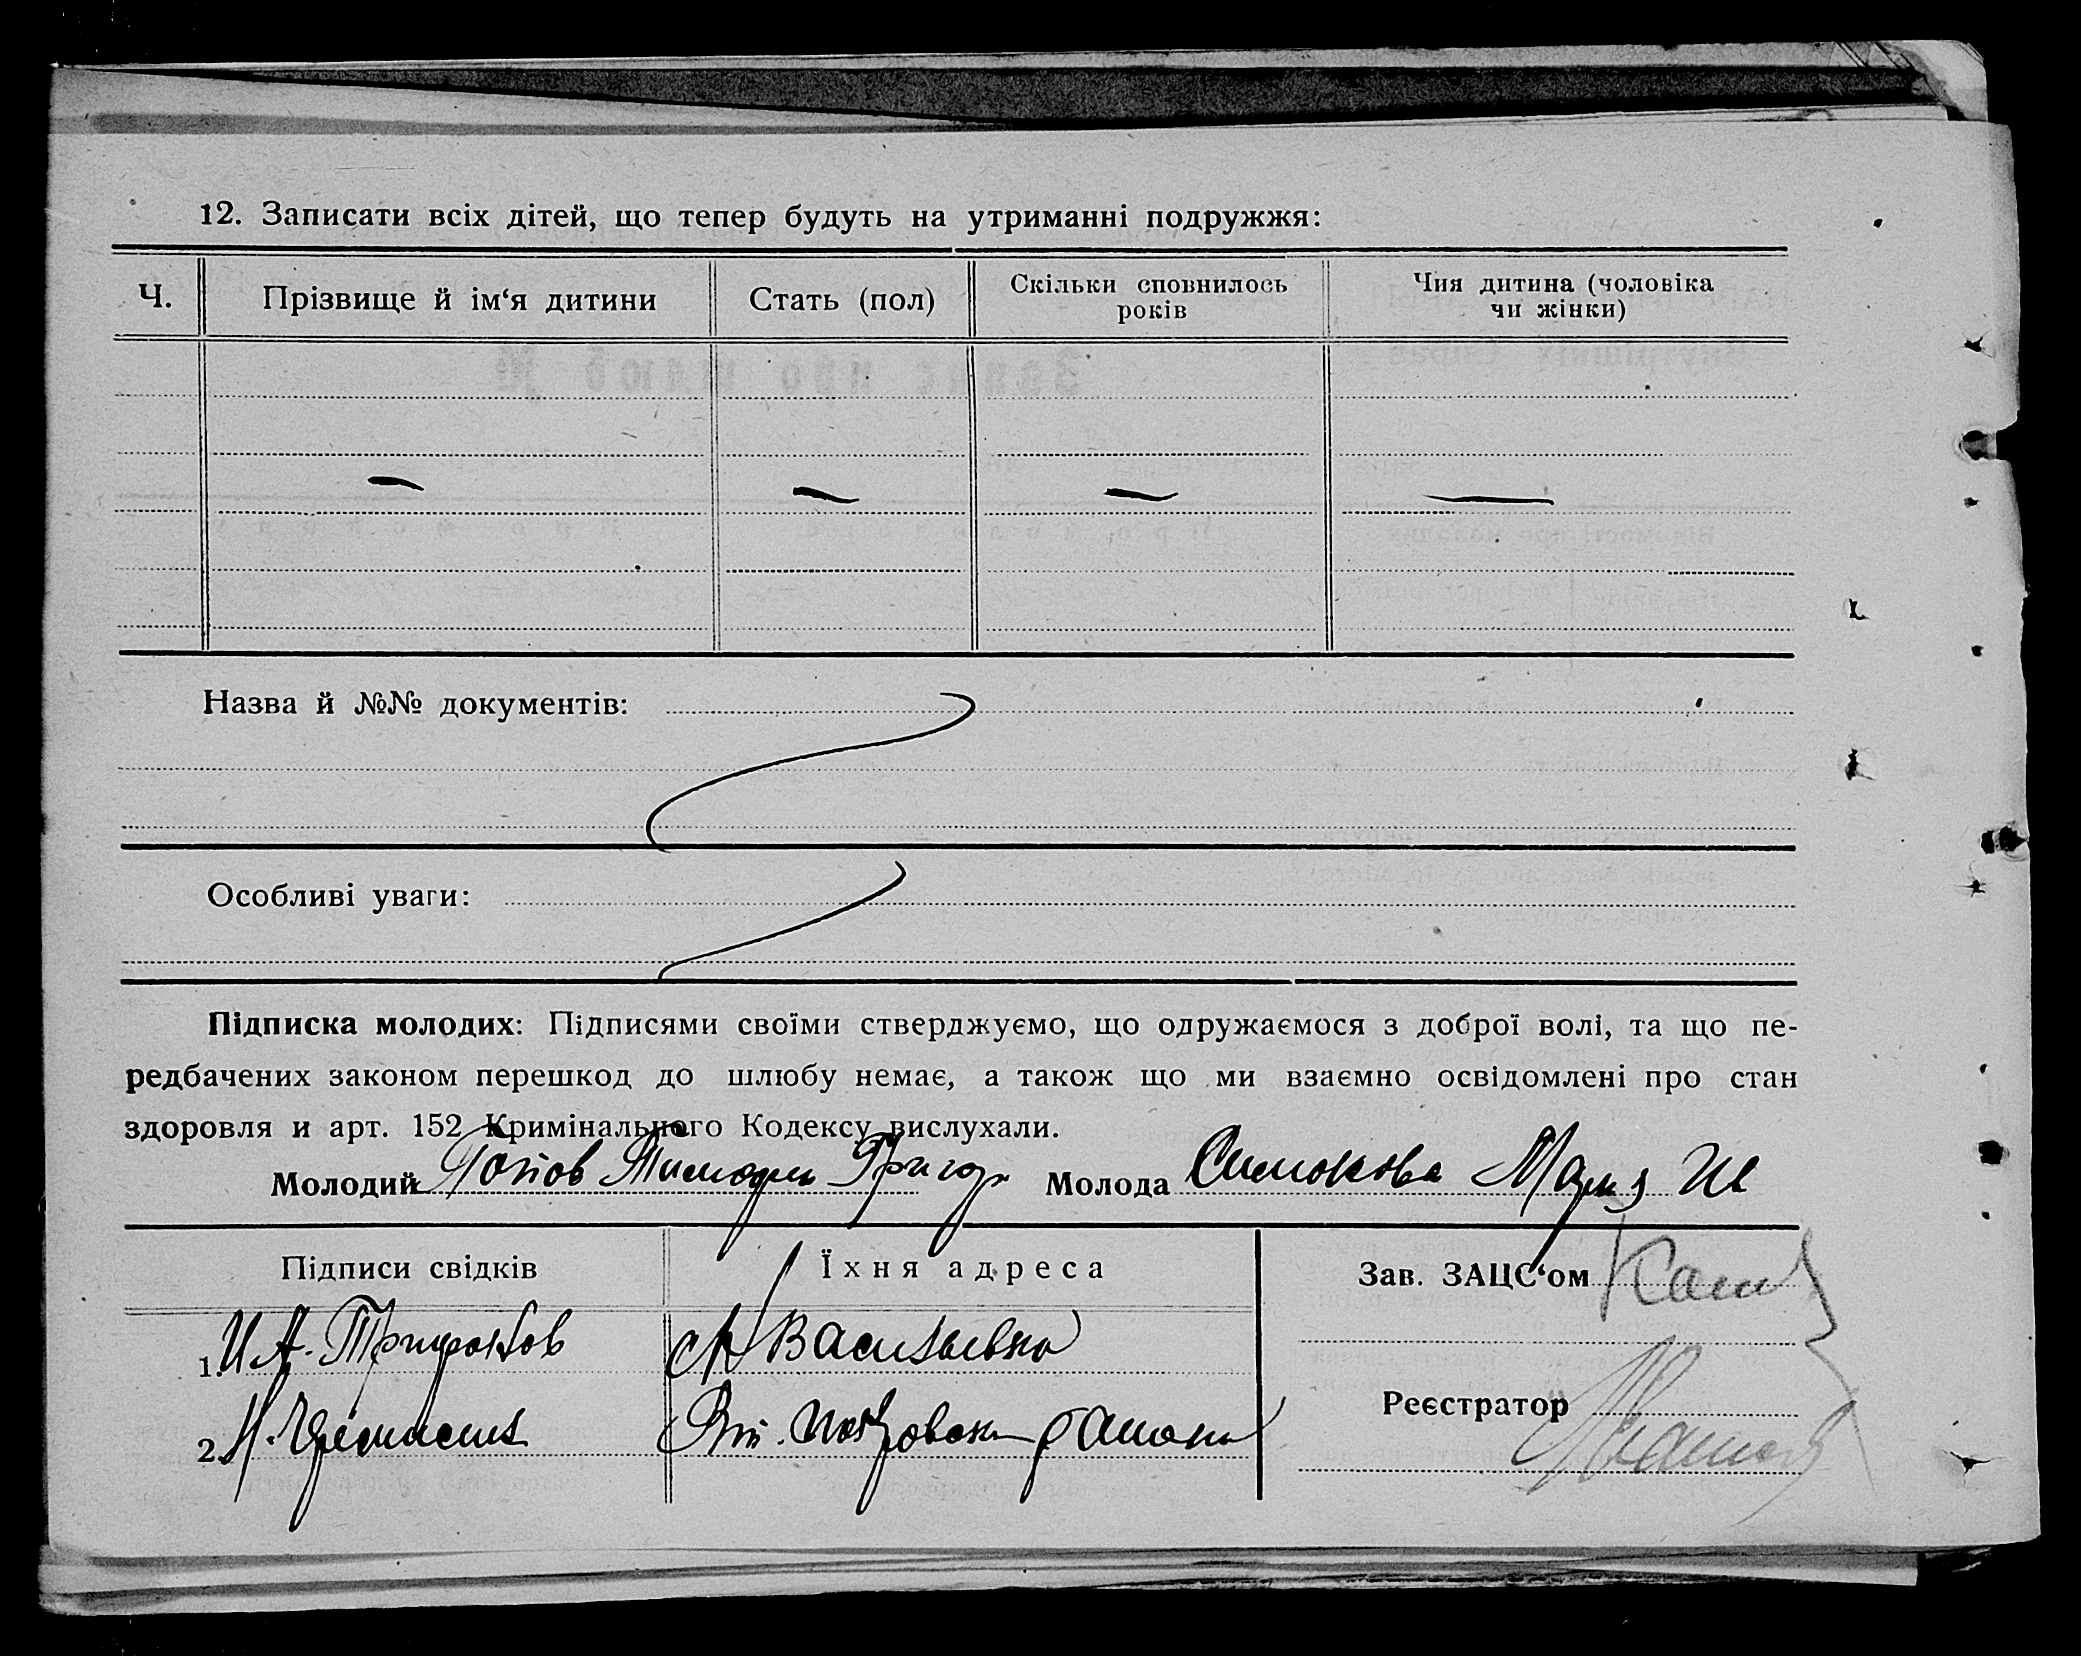 12. Записати всіх дітей, що тепер будуть на утриманні подружжя:
Ч. Прізвище й ім‘я дитини Стать (пол) Скільки сповнилось років Чия дитина (чоловіка чи жінки)
Назва й №№ документів:
Особливі уваги:
Підписка молодих: Підписями своїми стверджуємо, що одружаємося з доброї волі, та що пе-
редбачених законом перешкод до шлюбу немає, а також що ми взаємно освідомлені про стан
здоровля и арт. 152 Кримінального Кодексу вислухали.
Молодий Попов Тимофей Григор Молода Симокова Мария
Підписи свідків Їхня адреса Зав. ЗАЦС‘ом
1. И А. Трифонов Васильевка
2. Н. Реєстратор